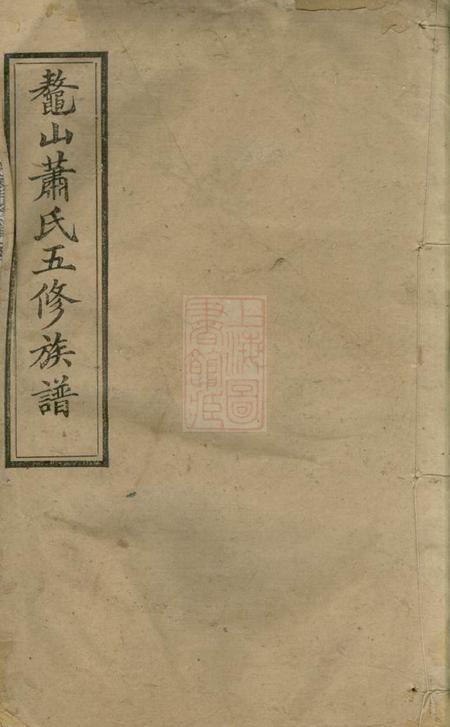 鼇山蕭氏五修族譜
上海圖
書館藏